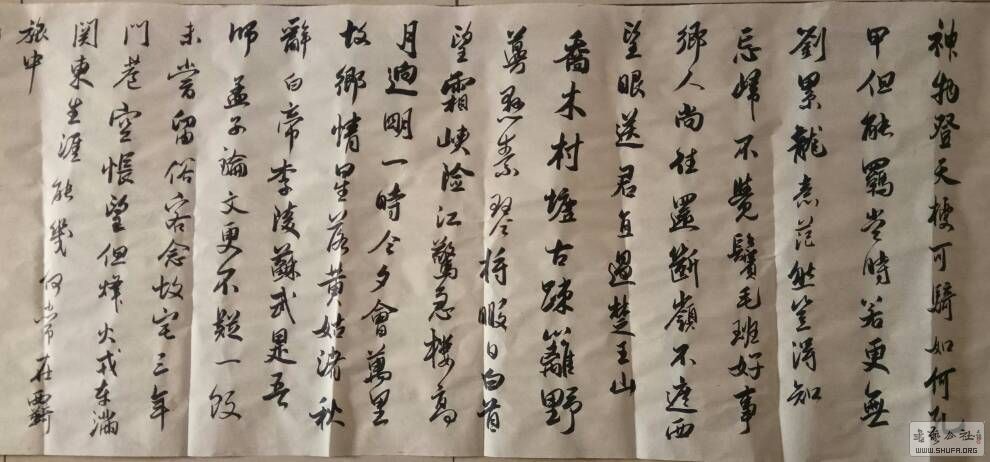 神物登天擾可騎如何孔
甲但能羈當時若更無
劉累龍意茫然豈得知
忘歸不覺鬢毛班好事
鄉人尚往還斷嶺不遮西
望眼送君直過楚王山
喬木村墟古疎籬野
蔓懸素琴將暇日白首
望霜峽险江驚急樓高
月迥明一時今夕會萬里
故鄉情星落黄姑渚秋
辭白帝李陵蘇武是吾
師孟子論文更不疑一飯
未嘗留俗客念故宅三年
門巷空悵望但烽火戎車滿
関東生涯能幾何常在羇
旅中
書藝公社
WWW.SHUFA.ORG